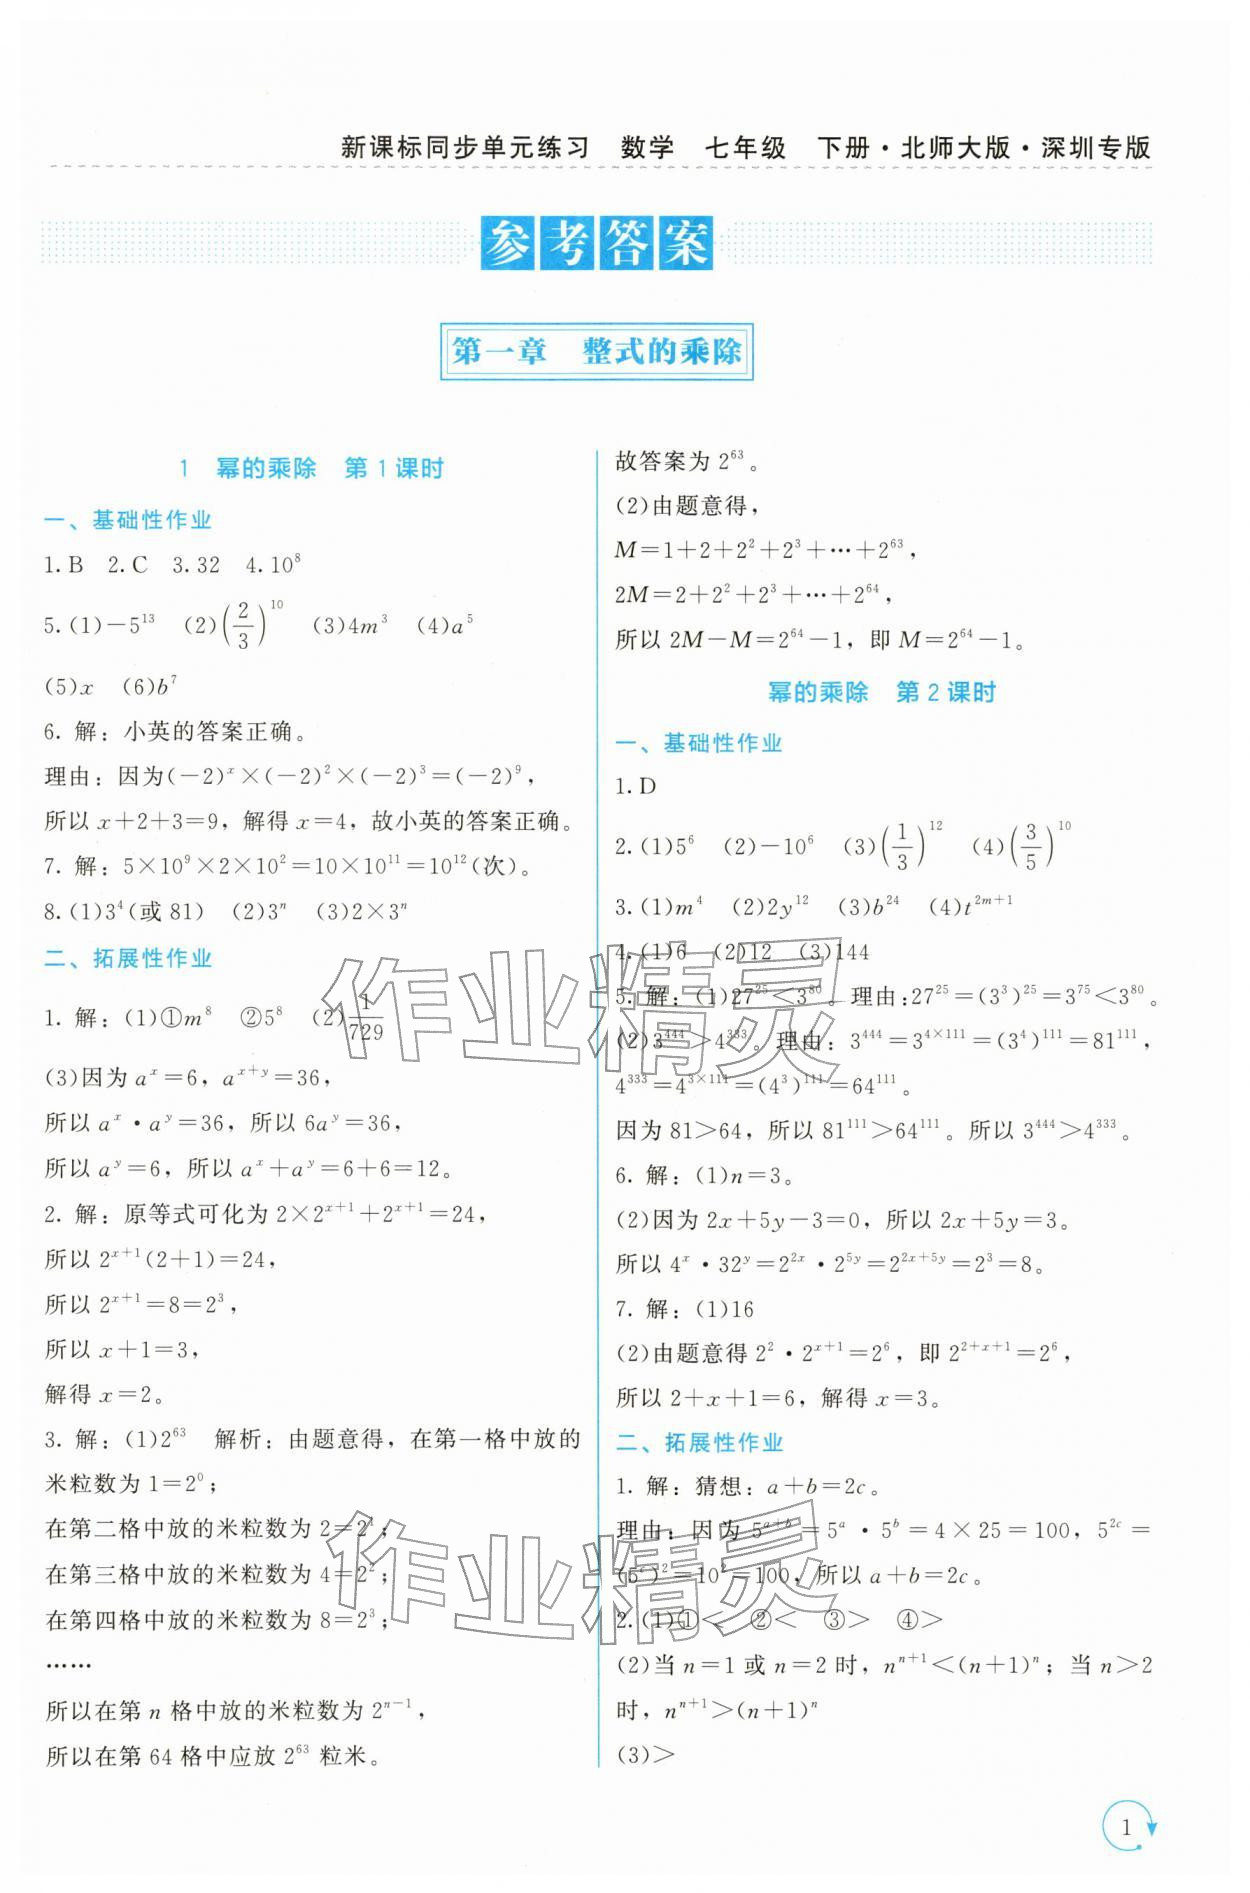 新课标同步单元练习 数学 七年级 下册·北师大版·深圳专版
参考答案
第一章 整式的乘除
1 幂的乘除 第1课时
一、基础性作业
1.B 2.C 3.32 4.10⁸
5.(1)-5¹³ (2)(2/3)¹⁰ (3)4m³ (4)a⁵
(5)x (6)b⁷
6. 解：小英的答案正确。
理由：因为(-2)ˣ×(-2)²×(-2)³=(-2)⁹，
所以 x+2+3=9，解得 x=4，故小英的答案正确。
7. 解：5×10⁹×2×10²=10×10¹¹=10¹²(次)。
8.(1)3⁴(或 81) (2)3ⁿ (3)2×3ⁿ
二、拓展性作业
1. 解：(1)①m⁸ ②5⁸ (2)1/729
(3)因为 aˣ=6，aˣ⁺ʸ=36，
所以 aˣ·aʸ=36，所以 6aʸ=36，
所以 aʸ=6，所以 aˣ+aʸ=6+6=12。
2. 解：原等式可化为 2×2ˣ⁺¹+2ˣ⁺¹=24，
所以 2ˣ⁺¹(2+1)=24，
所以 2ˣ⁺¹=8=2³，
所以 x+1=3，
解得 x=2。
3. 解：(1)2⁶³ 解析：由题意得，在第一格中放的
米粒数为 1=2⁰；
在第二格中放的米粒数为 2=2¹；
在第三格中放的米粒数为 4=2²；
在第四格中放的米粒数为 8=2³；
……
所以在第 n 格中放的米粒数为 2ⁿ⁻¹，
所以在第 64 格中应放 2⁶³ 粒米。
故答案为 2⁶³。
(2)由题意得，
M=1+2+2²+2³+…+2⁶³，
2M=2+2²+2³+…+2⁶⁴，
所以 2M-M=2⁶⁴-1，即 M=2⁶⁴-1。
幂的乘除 第2课时
一、基础性作业
1.D
2.(1)5⁶ (2)-10⁶ (3)(1/3)¹² (4)(3/5)¹⁰
3.(1)m⁴ (2)2y¹² (3)b²⁴ (4)t²ᵐ⁺¹
4.(1)6 (2)12 (3)144
5. 解：(1)27²⁵<3⁸⁰。理由：27²⁵=(3³)²⁵=3⁷⁵<3⁸⁰。
(2)3⁴⁴⁴>4³³³。理由：3⁴⁴⁴=3⁴ˣ¹¹¹=(3⁴)¹¹¹=81¹¹¹，
4³³³=4³ˣ¹¹¹=(4³)¹¹¹=64¹¹¹。
因为 81>64，所以 81¹¹¹>64¹¹¹。所以 3⁴⁴⁴>4³³³。
6. 解：(1)n=3。
(2)因为 2x+5y-3=0，所以 2x+5y=3。
所以 4ˣ·32ʸ=2²ˣ·2⁵ʸ=2²ˣ⁺⁵ʸ=2³=8。
7. 解：(1)16
(2)由题意得 2²·2ˣ⁺¹=2⁶，即 2²⁺ˣ⁺¹=2⁶，
所以 2+x+1=6，解得 x=3。
二、拓展性作业
1. 解：猜想：a+b=2c。
理由：因为 5ᵃ⁺ᵇ=5ᵃ·5ᵇ=4×25=100，5²ᶜ=
(5ᶜ)²=10²=100，所以 a+b=2c。
2.(1)①< ②< ③> ④>
(2)当 n=1 或 n=2 时，nⁿ⁺¹<(n+1)ⁿ；当 n>2
时，nⁿ⁺¹>(n+1)ⁿ
(3)>
作业精灵
作业精灵
1